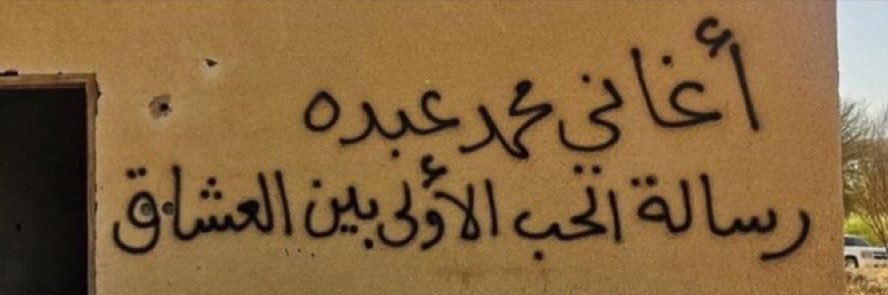 أغاني محمد عبده
رسالة الحب الأولى بين العشاق